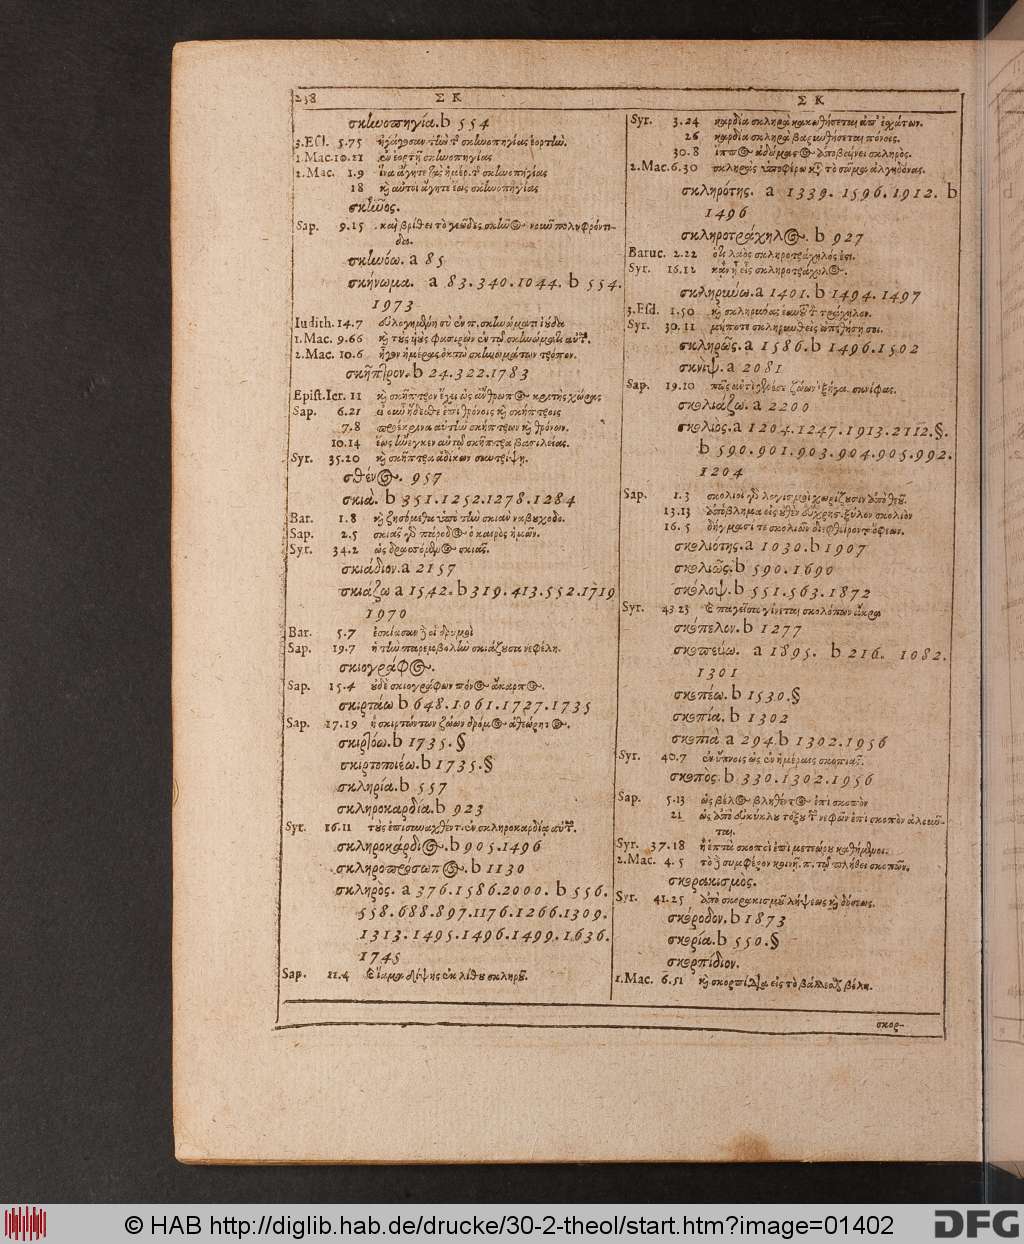 238
Σ Κ
Σ Κ
σκηνοπηγία. b 554
3. Esd. 5.75 ἠγάγοσαν τὴν τ σκηνοπηγίας ἑορτὴν.
1. Mac. 10.21 ἐν ἑορτῇ σκηνοπηγίας
2. Mac. 1.9 ἵνα ἄγητε τὰς ἡμέρ. τ σκηνοπηγίας
18 καὶ αὐτοὶ ἄγητε ὡς σκηνοπηγίας
σκῆνος.
Sap. 9.15 καὶ βρίθει τὸ γεῶδες σκῆνος νοιῶ πολυφρόντι-
δα.
σκηνόω. a 85
σκήνωμα. a 83.340.1044. b 554.
1973
Iudith. 14.7 εὐλογημένη σὺ ἐν π. σκηνώματι ἰούδα
1. Mac. 9.66 καὶ τοὺς υἱοὺς φασιρὼν ἐν τῷ σκηνώματι αὐτ.
2. Mac. 10.6 ἦγον ἡμέρας ὀκτὼ σκηνωμάτων τρόπον.
σκῆπτρον. b 24.322.1783
Epist. Ier. 11 καὶ σκῆπτρον ἔχει ὡς ἄνθρωπος κριτὴς χώρας
Sap. 6.21 εἰ οὖν ἥδεσθε ἐπὶ θρόνοις καὶ σκήπτροις
7.8 προέκρινα αὐτὴν σκήπτρων καὶ θρόνων.
10.14 ἕως ἤνεγκεν αὐτῷ σκῆπτρα βασιλείας.
Syr. 35.20 καὶ σκῆπτρα ἀδίκων συντρίψῃ.
σθένος. 957
σκιὰ. b 351.1252.1278.1284
Bar. 1.8 καὶ ζησόμεθα ὑπὸ τὴν σκιὰν ναβουχοδο.
Sap. 2.5 σκιᾶς γὸ πάροδος ὁ καιρὸς ἡμῶν.
Syr. 34.2 ὡς δρασσόμενος σκιᾶς.
σκιάδιον. a 2157
σκιάζω a 1542. b 319.413.552.1719
1970
Bar. 5.7 ἐσκίασαν ϳ οἱ δρυμοὶ
Sap. 19.7 ἡ τὴν παρεμβολὴν σκιάζουσα νεφέλη.
σκιογράφος.
Sap. 15.4 οὐδὲ σκιογράφων πόνος ἄκαρπος.
σκιρτάω b 648.1061.1727.1735
Sap. 17.19 ἡ σκιρτώντων ζώων δρόμος ἀθεώρητος.
σκιρτόω. b 1735.§
σκιρτοποιέω. b 1735.§
σκληρία. b 557
σκληροκαρδία. b 923
Syr. 16.11 τοὺς ἐπισυναχθέντ. ἐν σκληροκαρδίᾳ αὐτ.
σκληροκάρδιος. b 905.1496
σκληροπρόσωπος. b 1130
σκληρὸς. a 376.1586.2000. b 556.
558.688.897.1176.1266.1309.
1313.1495.1496.1499.1636.
1745
Sap. 11.4 καὶ ἴαμα δίψης ἐκ λίθου σκληροῦ.
Syr. 3.24 καρδία σκληρὰ κακωθήσεται ἐπ' ἐσχάτων.
26 καρδία σκληρὰ βαρυνθήσεται πόνοις.
30.8 ἵππος ἀδάμαστος ἀποβαίνει σκληρὸς.
2. Mac. 6.30 σκληρὰς ὑποφέρω κτ τὸ σῶμα ἀλγηδόνας.
σκληρότης. a 1339. 1596.1912. b
1496
σκληροτράχηλος. b 927
Baruc. 2.22 ὅτι λαὸς σκληροτράχηλός ἐστι.
Syr. 16.12 κἂν ᾖ εἷς σκληροτράχηλος.
σκληρύνω. a 1401. b 1494.1497
3. Esd. 1.50 καὶ σκληρύνας ἑαυτ τ τράχηλον.
Syr. 30.11 μήποτε σκληρυνθεὶς ἀπειθήσῃ σοι.
σκληρῶς. a 1586. b 1496.1502
σκνὶψ. a 2081
Sap. 19.10 πῶς ἀντὶ γενέσε ζώων ἐξήγα. σκνίφας.
σκολιάζω. a 2200
σκολιὸς. a 1204.1247.1913.2112.§.
b 590.901.903.904.905.992.
1204
Sap. 1.3 σκολιοὶ γὸ λογισμοὶ χωρίζουσιν ἀπὸ θεοῦ.
13.13 ἀπόβλημα εἰς οὐθὲν εὔχρησ. ξύλον σκολιὸν
16.5 δήγμασί τε σκολιῶν διεφθείροντο ὄφεων.
σκολιότης. a 1030. b 1907
σκολιῶς. b 590.1690
σκόλοψ. b 551.563.1872
Syr. 43.23 καὶ παγεῖσα γίνεται σκολόπων ἄκρα
σκόπελον. b 1277
σκοπεύω. a 1895. b 216. 1082.
1301
σκοπέω. b 1530.§
σκοπία. b 1302
σκοπιὰ a 294. b 1302.1956
Syr. 40.7 ἐν ὕπνοις ὡς ἐν ἡμέραις σκοπιᾶς.
σκοπὸς. b 330.1302.1956
Sap. 5.13 ὡς βέλος βληθέντος ἐπὶ σκοπὸν
21 ὡς ἀπὸ εὐκύκλου τόξου τ νεφῶν ἐπὶ σκοπὸν ἁλοῦν-
ται.
Syr. 37.18 ἢ ἑπτὰ σκοποὶ ἐπὶ μετεώρου καθήμενοι.
2. Mac. 4.5 τὸ ϳ συμφέρον κοινῇ π. τῷ πλήθει σκοπῶν.
σκορακισμὸς.
Syr. 41.25 ἀπὸ σκορακισμοῦ λήψεως καὶ δόσεως.
σκόροδον. b 1873
σκορία. b 550.§
σκορπίδιον.
1. Mac. 6.51 καὶ σκορπίδια εἰς τὸ βάλλεσθ βέλη.
σκορ-
© HAB http://diglib.hab.de/drucke/30-2-theol/start.htm?image=01402
DFG